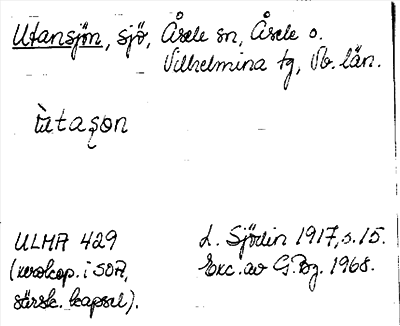 Utansjön, sjö, Åsele sn, Åsele o.
Vilhelmina tg, Vb. län.
ùtaşon
ULMA 429
(xerokop. i SOA,
särsk. kapsel).
L. Sjödin 1917, s. 15.
Exc. av G. Bz. 1968.